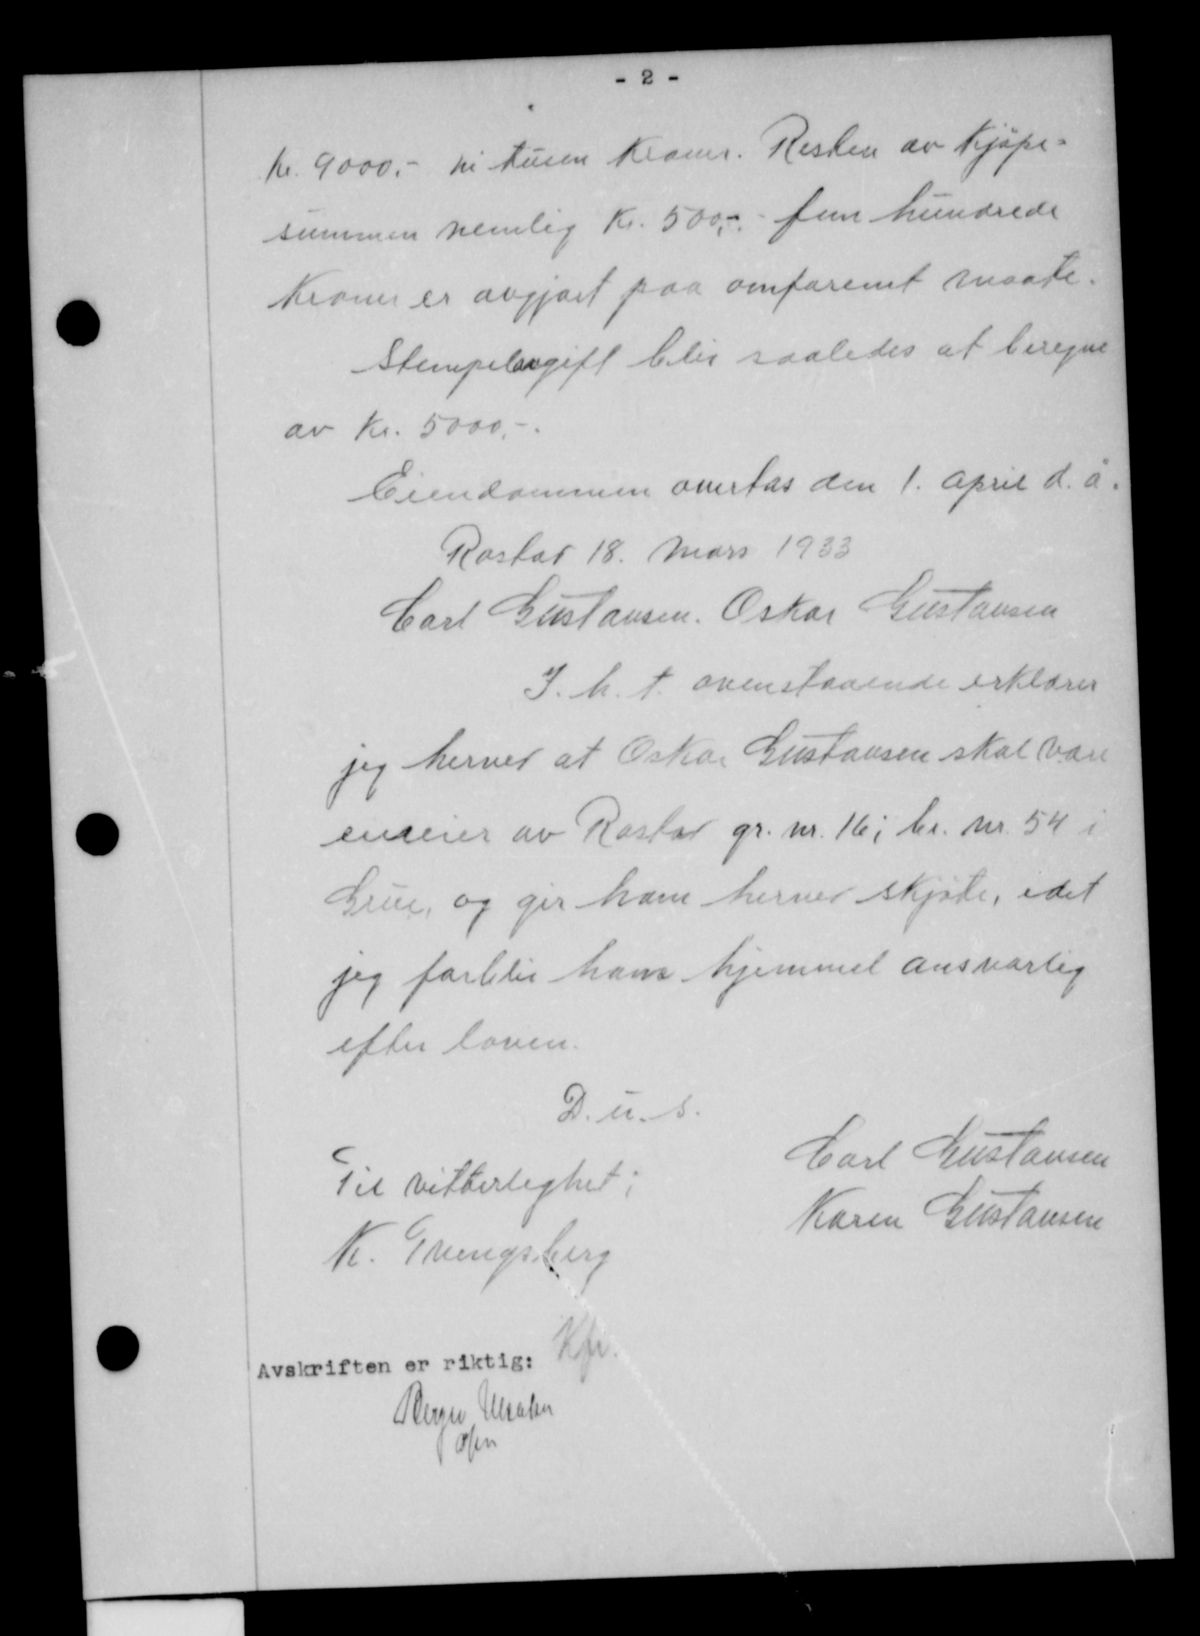 - 2 -
kr. 9000,- ni tusen kroner. Resten av kjøpe-
summen nemlig kr. 500,-. fem hundrede
kroner er avgjort paa omforenet maate.
Stempelavgift blir saaledes at beregne
av kr. 5000,-.
Eiendommen overtas den 1. april d. å.
Rostad 18. mars 1933
Carl Gustavsen. Oskar Gustavsen
I. h. t. ovenstaaende erklærer
jeg herved at Oskar Gustavsen skal være
eneeier av Rostad gr. nr. 16; br. nr. 54 i
Grue, og gir ham herved skjøte, idet
jeg forblir hans hjemmel ansvarlig
efter loven.
D. u. s.
Carl Gustavsen
Til vitterlighet;
Karen Gustavsen
K.
Kfr.
Avskriften er riktig: